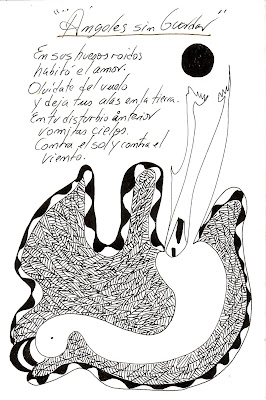 "Angeles sin Guardar"
En sus huegos roidos
habitó el amor.
Olvidate del vuelo
y dejá tus alas en la tierra.
En tu disturbio anterior
vomitas cielos.
Contra el sol y contra el
viento.